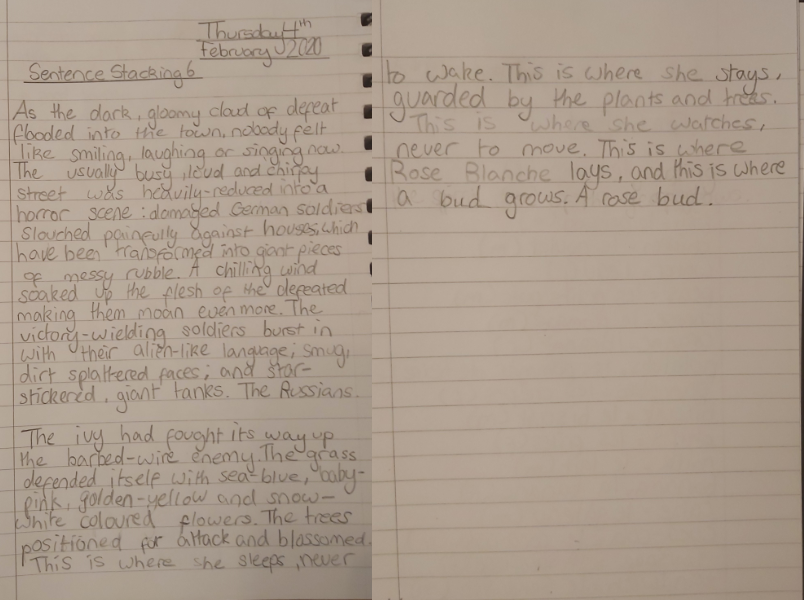 Thursday 4th
February 2020
Sentence Stacking 6
As the dark, gloomy cloud of defeat
flooded into the town, nobody felt
like smiling, laughing or singing now.
The usually busy, loud and chirpy
street was heavily-reduced into a
horror scene: damaged German soldiers
slouched painfully against houses, which
have been transformed into giant pieces
of messy rubble. A chilling wind
soaked up the flesh of the defeated
making them moan even more. The
victory-wielding soldiers burst in
with their alien-like language; smug,
dirt splattered faces; and star-
stickered, giant tanks. The Russians.
The ivy had fought its way up
the barbed-wire enemy. The grass
defended itself with sea-blue, baby-
pink, golden-yellow and snow-
white coloured flowers. The trees
positioned for attack and blossomed.
This is where she sleeps, never
to wake. This is where she stays,
guarded by the plants and trees.
This is where she watches,
never to move. This is where
Rose Blanche lays, and this is where
a bud grows. A rose bud.